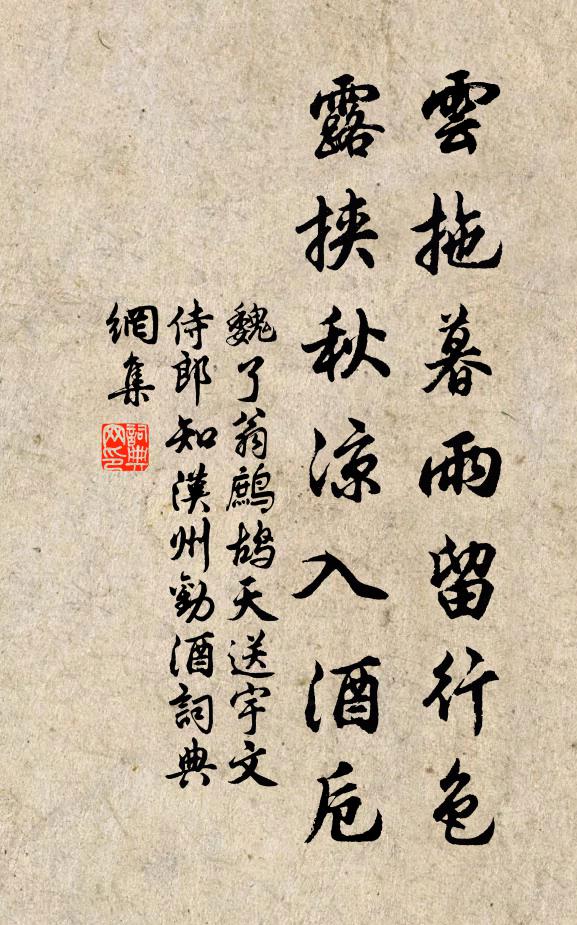 雲拖暮雨留行色
露挾秋涼入酒卮
魏了翁鷓鴣天送宇文
侍郎知漢州勸酒詞典
網集
詞典網印